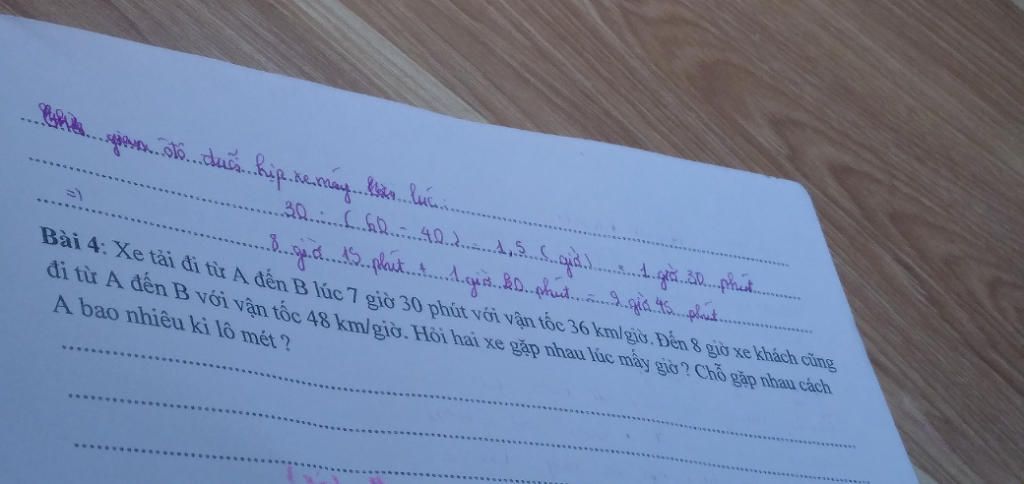 gian ôtô đuổi kịp xe máy lúc:
30 : ( 60 - 40 ) = 1,5 ( giờ ) = 1 giờ 30 phút
=) 8 giờ 15 phút + 1 giờ 30 phút = 9 giờ 45 phút
Bài 4: Xe tải đi từ A đến B lúc 7 giờ 30 phút với vận tốc 36 km/giờ. Đến 8 giờ xe khách cũng
đi từ A đến B với vận tốc 48 km/giờ. Hỏi hai xe gặp nhau lúc mấy giờ ? Chỗ gặp nhau cách
A bao nhiêu ki lô mét ?